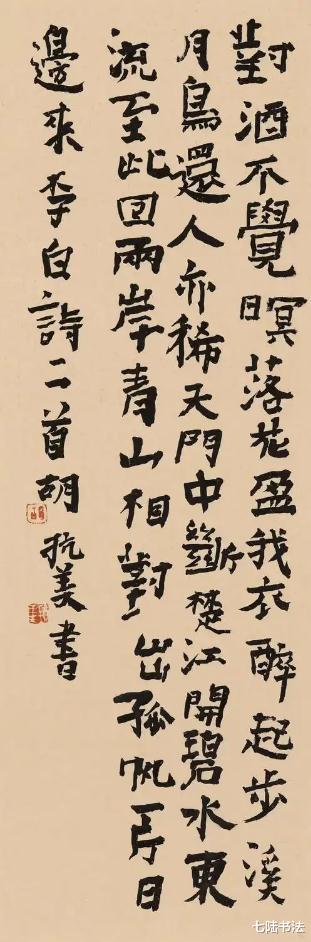 對酒不覺暝落花盈我衣醉起步溪
月鳥還人亦稀天門中斷楚江開碧水東
流至此回兩岸青山相對出孤帆一片日
邊來李白詩二首胡抗美書
七陆书法